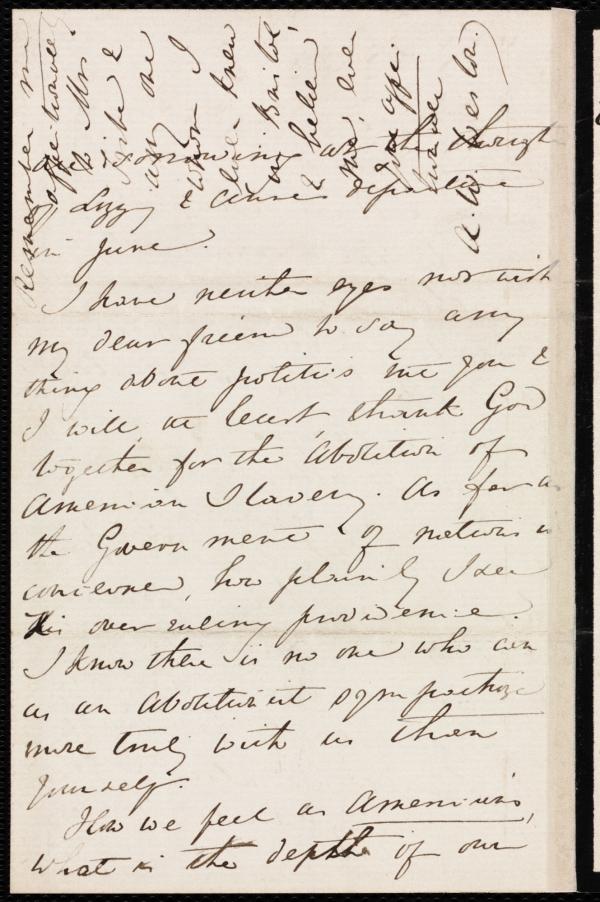 Remember me
affectionately
to Mrs
Estlin &
any one
whom I
ever knew
in Bristol
& believe
me, ever
your affec.
A. W. Weston.
Sorrowing at the thought
of Lizzy & Anne's departure
in June.
I have neither eyes nor wish
my dear friend to say any
thing about politics but you &
I will, at least, thank God
together for the Abolition of
American Slavery. As far as
the Government of nations is
concerned, how plainly I see
His over ruling providence.
I know there is no one who can
as an Abolitionist sympathize
more truly with us than
yourself.
How we feel as Americans,
what is the depth of our